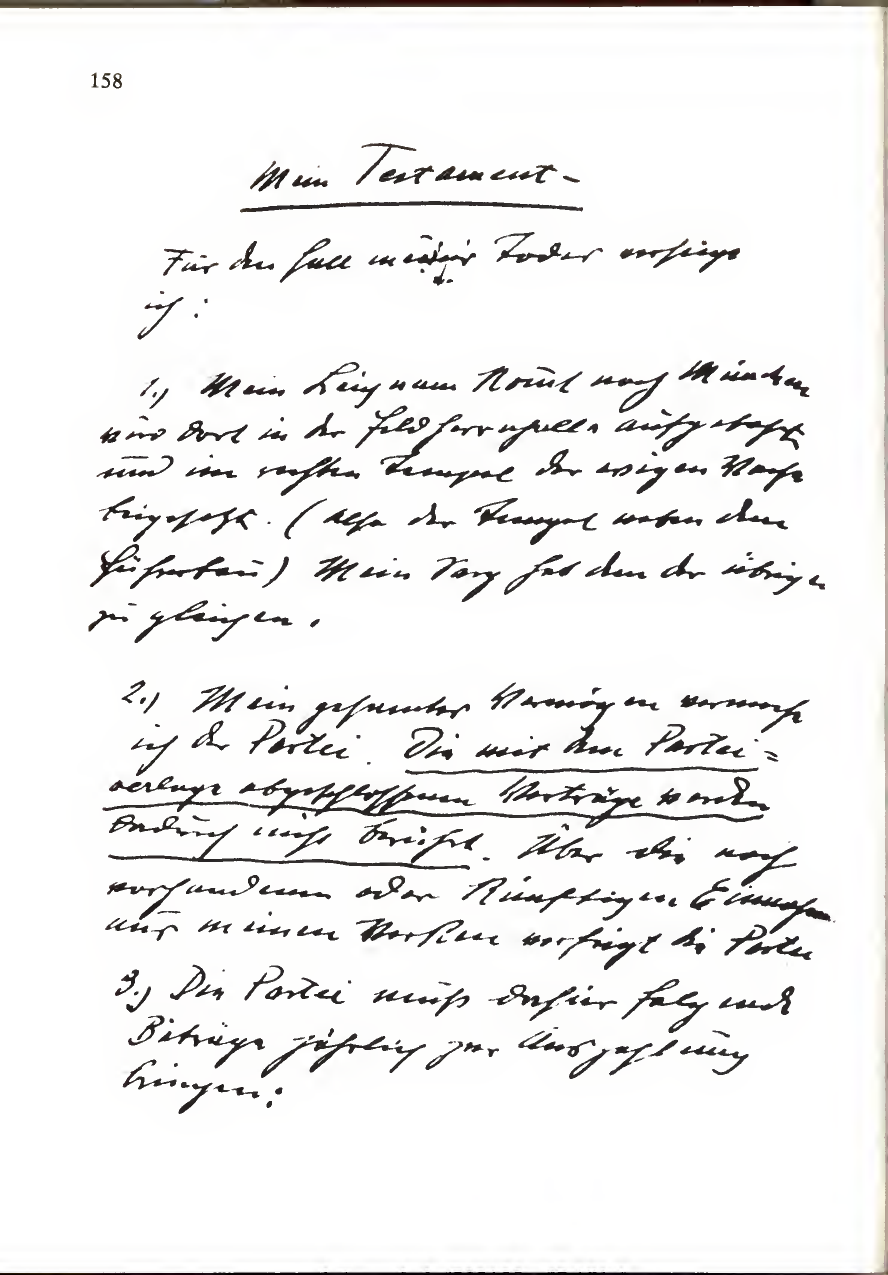 158
Mein Testament -
Für den Fall meines Todes verfüge
ich:
1.) Mein Leichnam kommt nach München
wird dort in der Feldherrnhalle aufgebahrt
und im rechten Tempel der ewigen Wache
beigesetzt. (Also der Tempel neben dem
Führerbau) Mein Sarg hat dem der übrigen
zu gleichen.
2.) Mein gesamtes Vermögen vermache
ich der Partei. Die mit dem Partei=
verlage abgeschlossenen Verträge werden
dadurch nicht berührt. Über die noch
vorhandenen oder künftigen Einnahmen
aus meinen Werken verfügt die Partei
3.) Die Partei muß dafür folgende
Beträge jährlich zur Auszahlung
bringen: